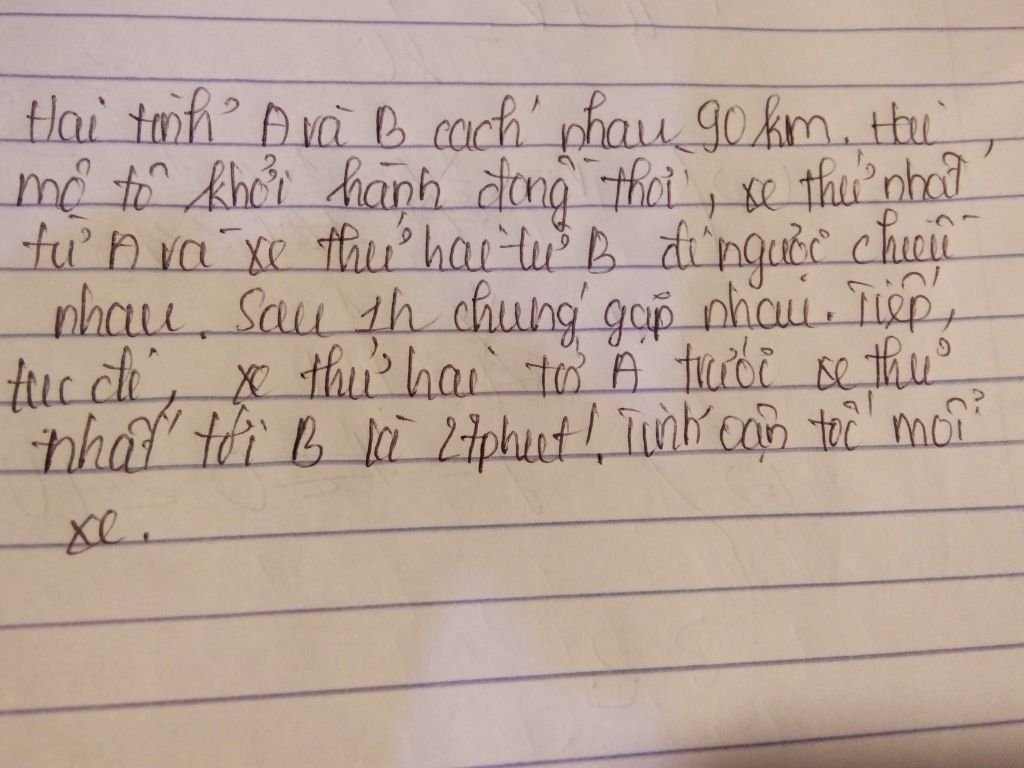 Hai tỉnh A và B cách nhau 90 km. Hai
mô tô khởi hành đồng thời, xe thứ nhất
từ A và xe thứ hai từ B đi ngược chiều
nhau. Sau 1h chúng gặp nhau. Tiếp
tục đi, xe thứ hai tới A trước xe thứ
nhất tới B là 27phút. Tính vận tốc mỗi
xe.